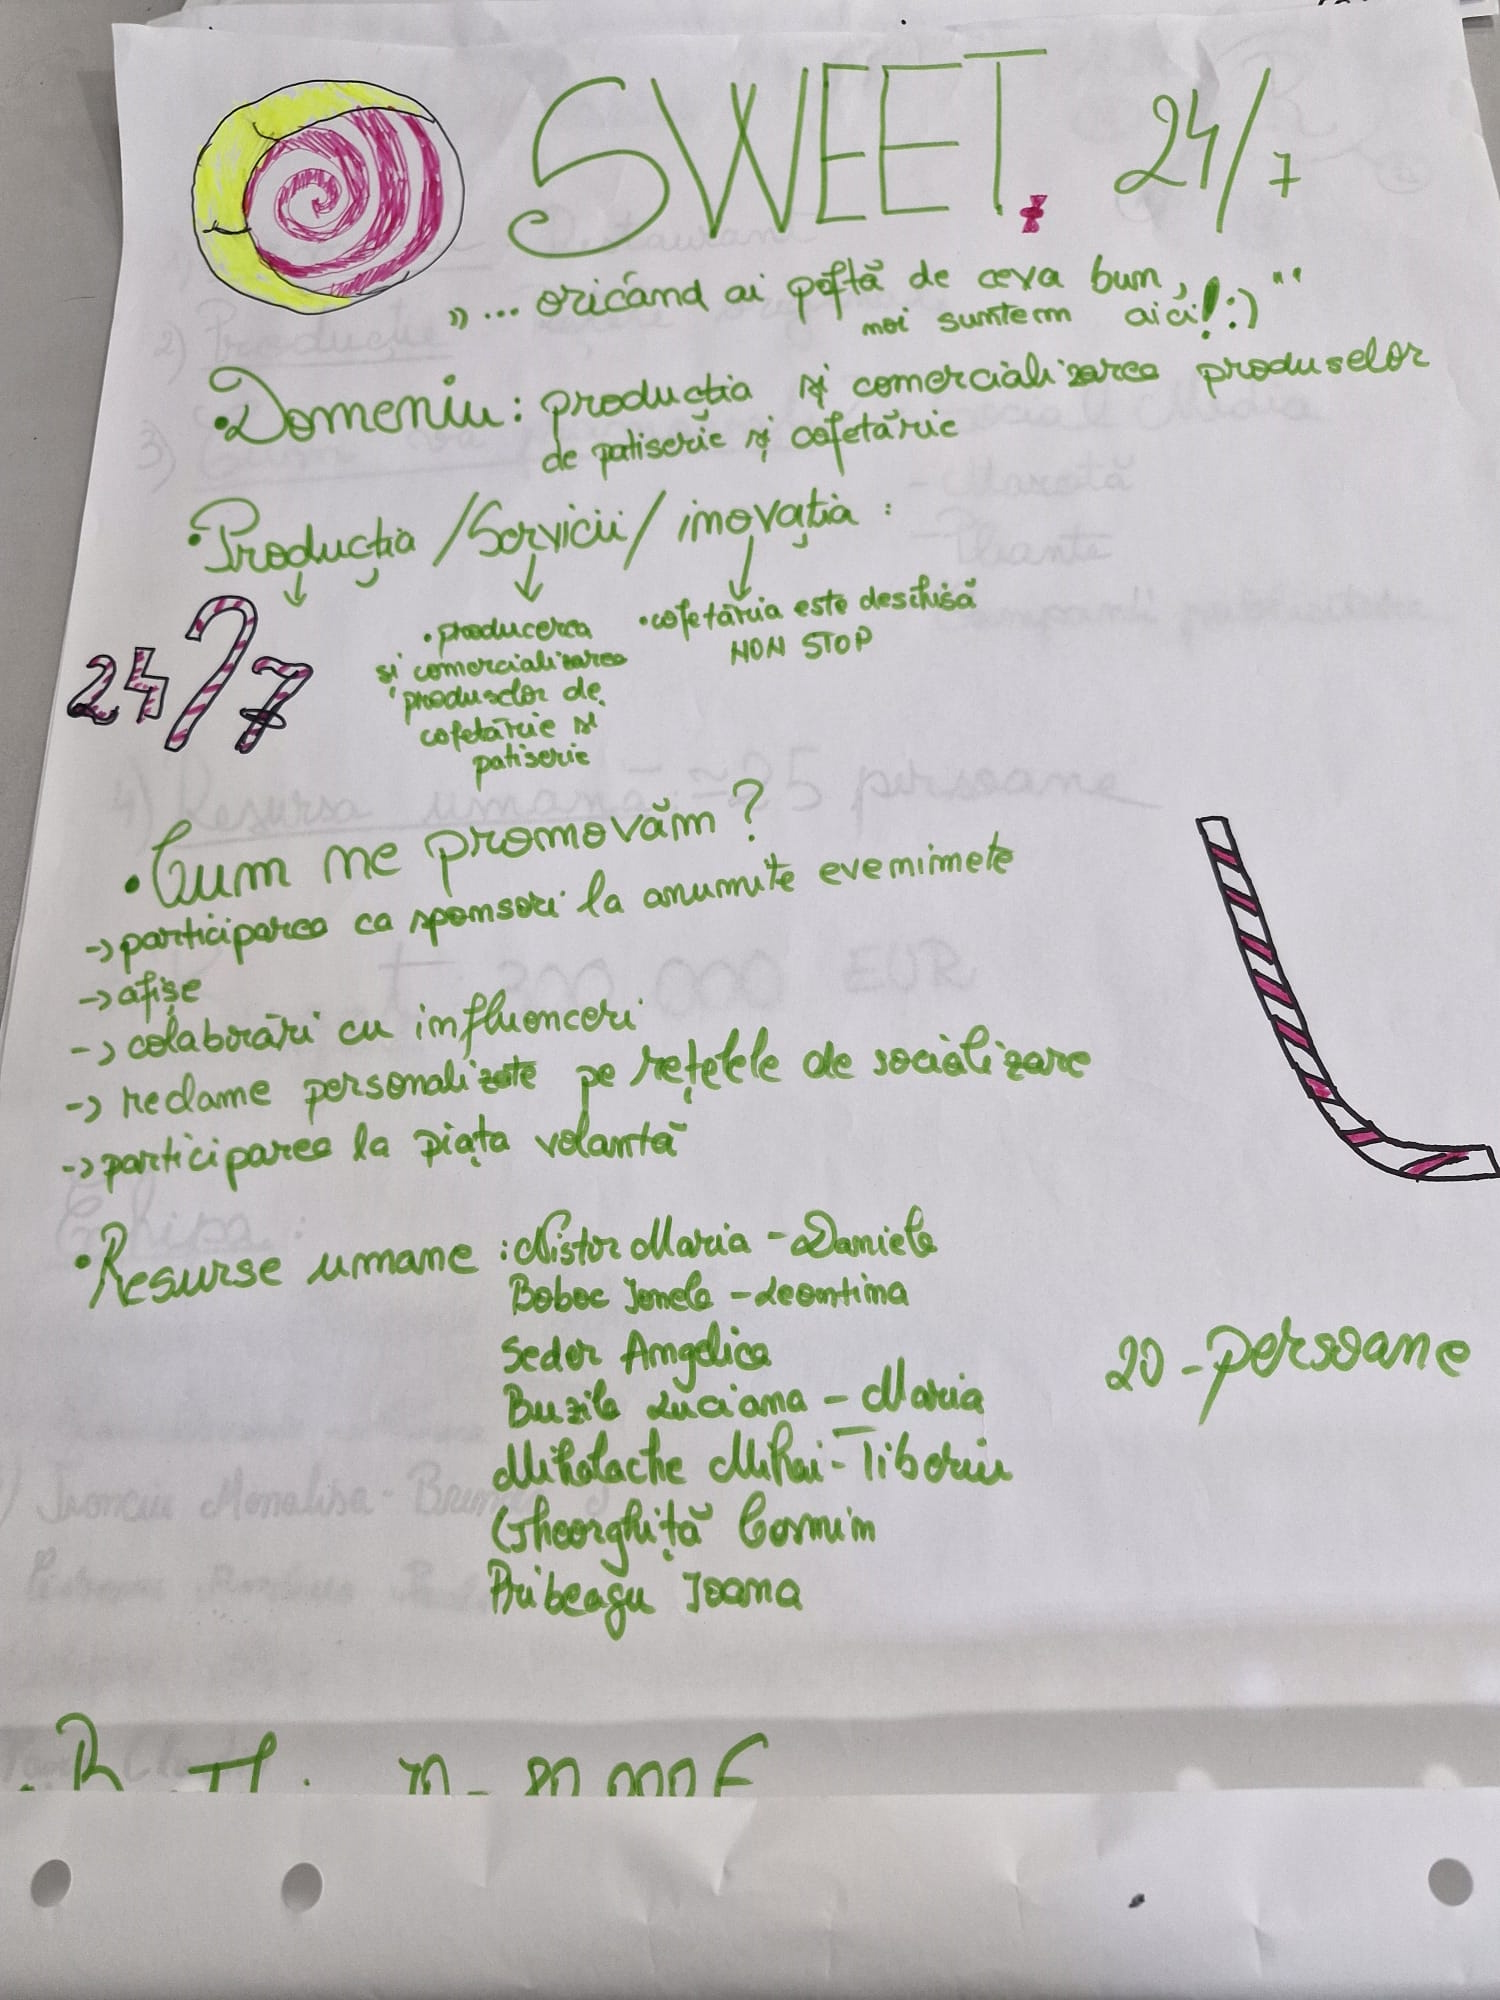 SWEET. 24/7
„... oricând ai poftă de ceva bun,
noi suntem aici! :)"
• Domeniu: producția și comercializarea produselor
de patiserie și cofetărie
• Producția / Servicii / inovația :
24/7
• producerea
și comercializarea
produselor de
cofetărie și
patiserie
• cofetăria este deschisă
NON STOP
• Cum ne promovăm?
-> participarea ca sponsori la anumite evenimnete
-> afișe
-> colaborări cu influenceri
-> reclame personalizate pe rețelele de socializare
-> participarea la piața volantă
• Resurse umane : Nistor Maria - Daniela
Boboc Ionela - Leontina
Seder Angelica
Buzila Luciana - Maria
Miholache Mihai - Tiberiu
Gheorghiță Cosmin
Pribeagu Ioana
20 - persoane